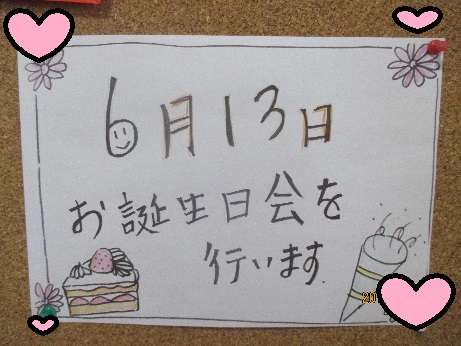 6月13日
お誕生日会を
行います
20